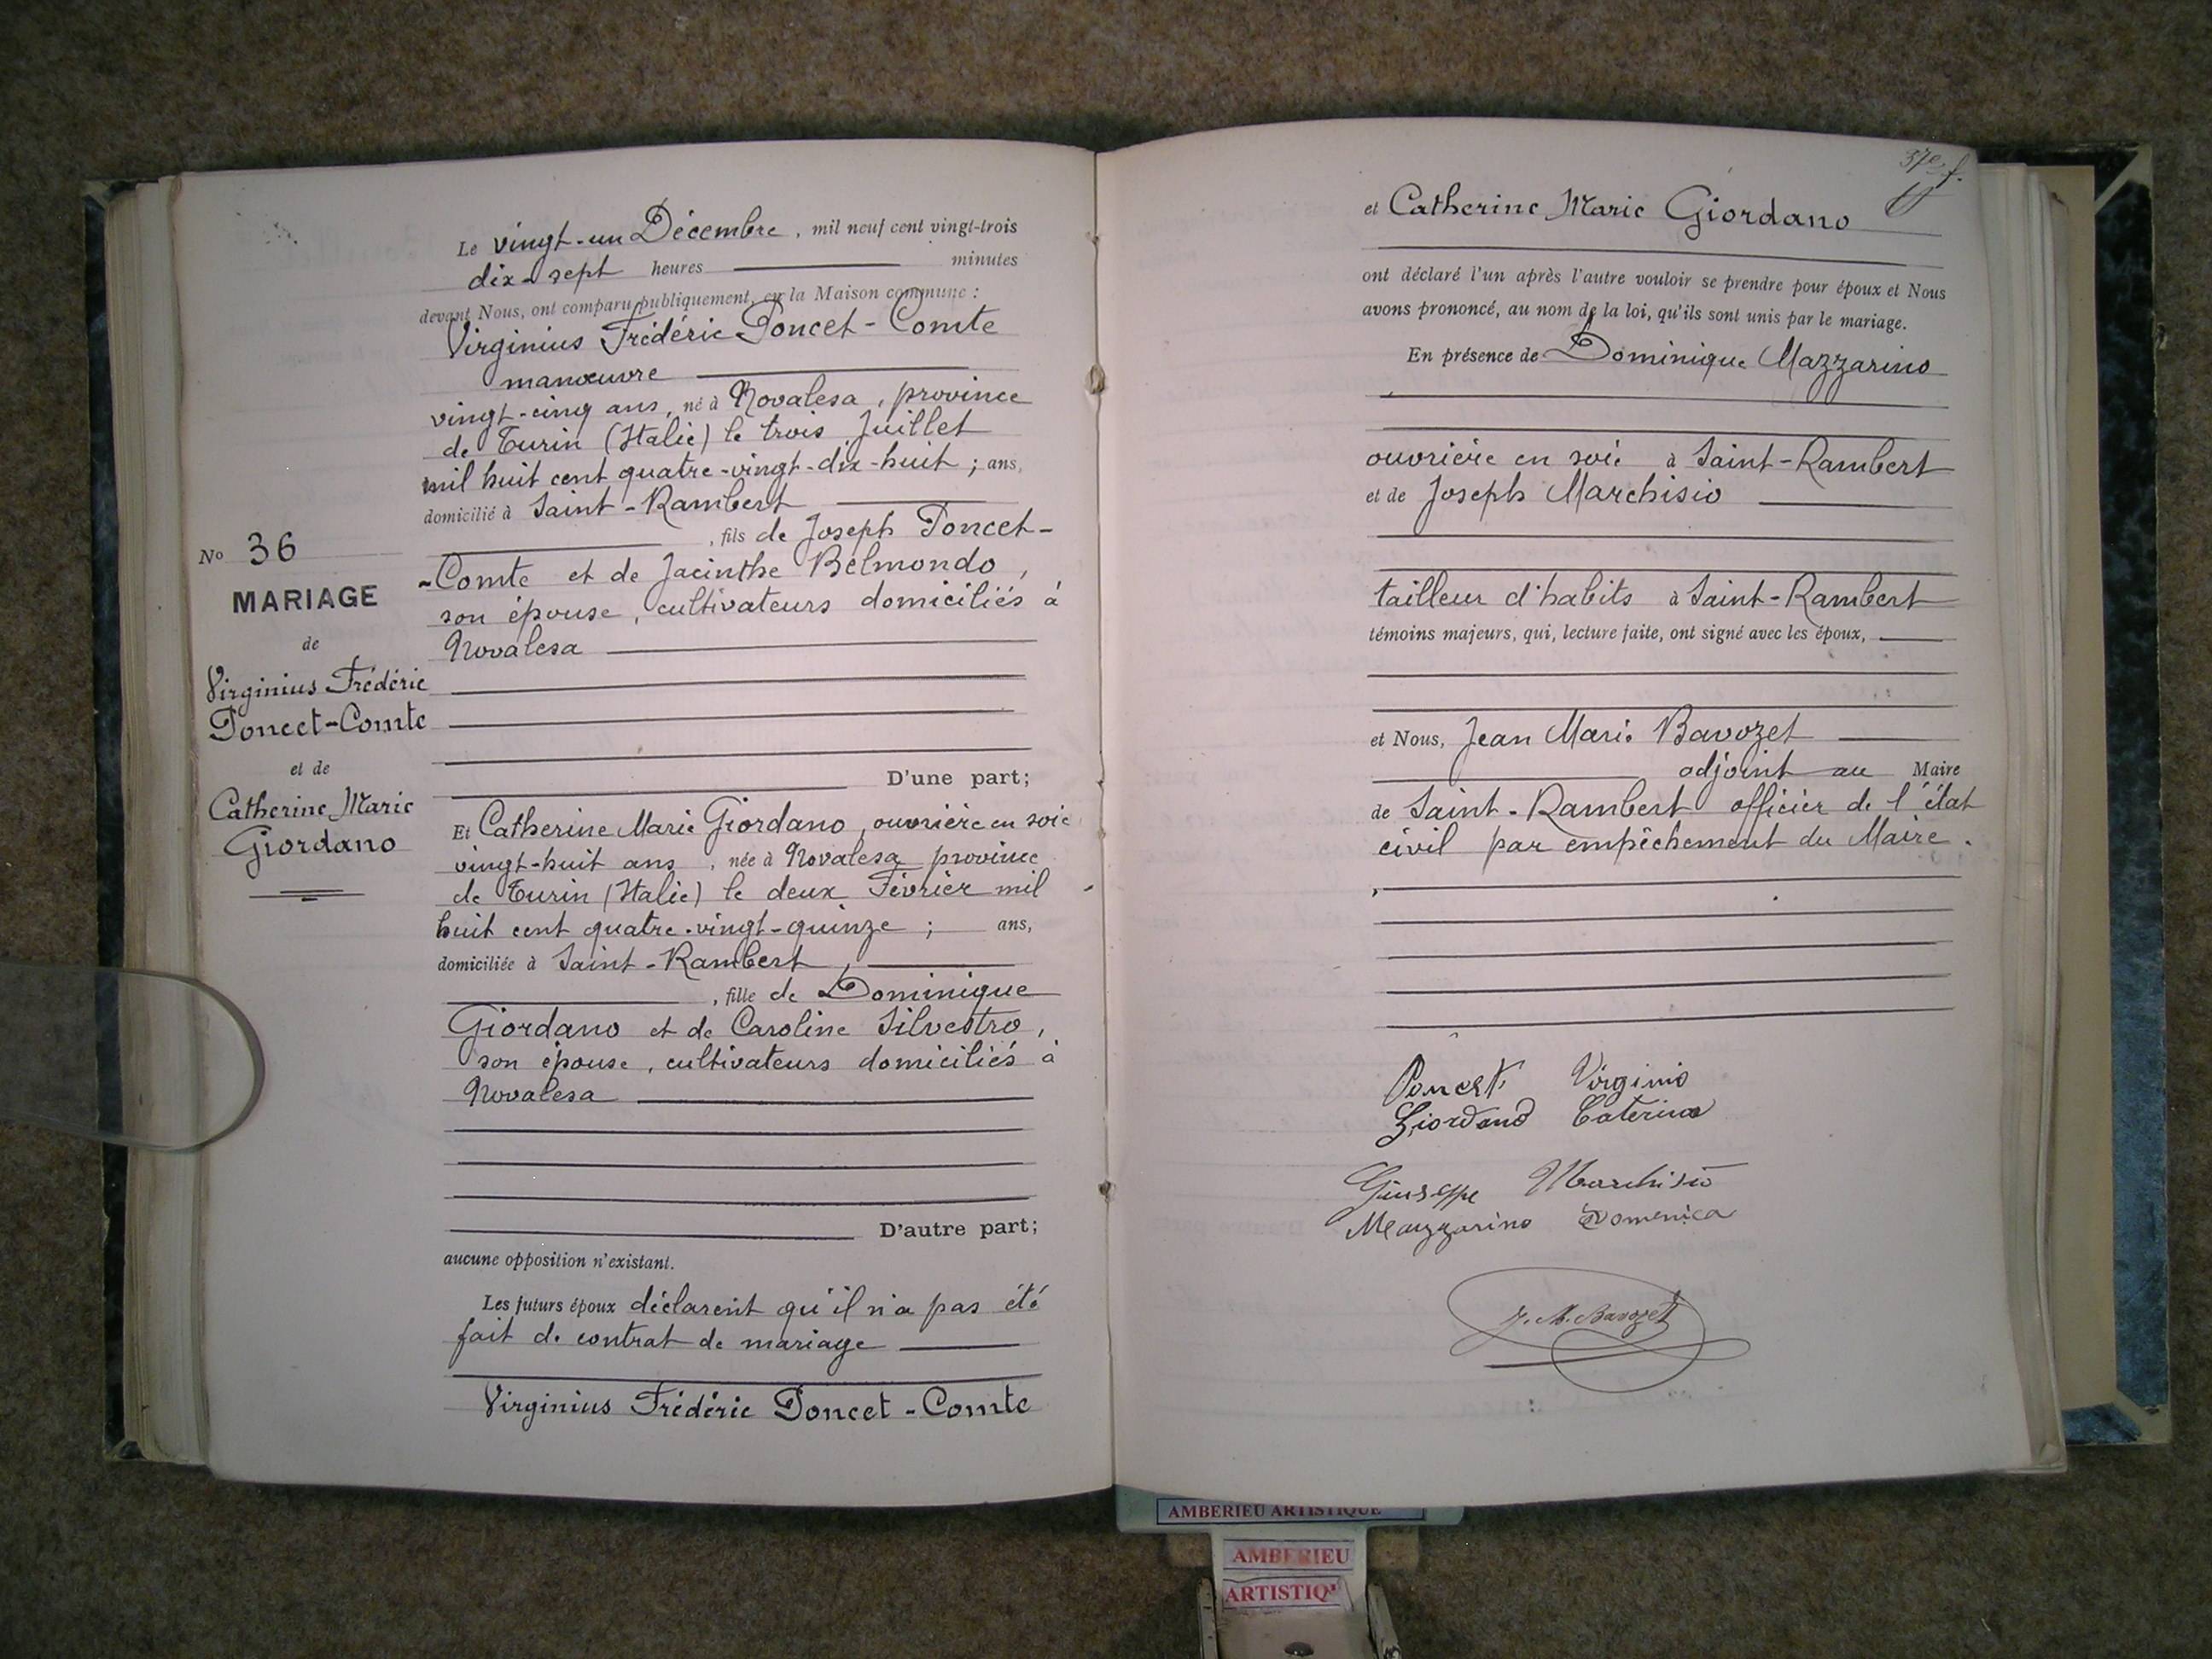 Le vingt-un Décembre, mil neuf cent vingt-trois
dix-sept heures minutes
devant Nous, ont comparu publiquement, en la Maison commune :
Virginius Frédéric Poncet-Comte
manœuvre
vingt-cinq ans, né à Novalesa, province
de Turin (Italie) le trois Juillet
mil huit cent quatre-vingt-dix-huit ; ans,
domicilié à Saint-Rambert
, fils de Joseph Poncet-
-Comte et de Jacinthe Belmondo,
son épouse, cultivateurs domiciliés à
Novalesa
D'une part;
No 36
MARIAGE
de
Virginius Frédéric
Poncet-Comte
et de
Catherine Marie
Giordano
Et Catherine Marie Giordano, ouvrière en soie
vingt-huit ans, née à Novalesa province
de Turin (Italie) le deux Février mil
huit cent quatre-vingt-quinze ; ans,
domiciliée à Saint-Rambert,
, fille de Dominique
Giordano et de Caroline Silvestro,
son épouse, cultivateurs domiciliés à
Novalesa
D'autre part;
aucune opposition n'existant.
Les futurs époux déclarent qu'il n'a pas été
fait de contrat de mariage
Virginius Frédéric Poncet-Comte
37e f.
et Catherine Marie Giordano
ont déclaré l'un après l'autre vouloir se prendre pour époux et Nous
avons prononcé, au nom de la loi, qu'ils sont unis par le mariage.
En présence de Dominique Mazzarino
ouvrière en soie à Saint-Rambert
et de Joseph Marchisio
tailleur d'habits à Saint-Rambert
témoins majeurs, qui, lecture faite, ont signé avec les époux,
et Nous, Jean Marie Bavozet
adjoint au Maire
de Saint-Rambert officier de l'état
civil par empêchement du Maire.
Poncet Virginio
Giordano Caterina
Giuseppe Marchisio
Mazzarino Domenica
J. M. Bavozet
AMBERIEU ARTISTIQUE
AMBERIEU
ARTISTIQ